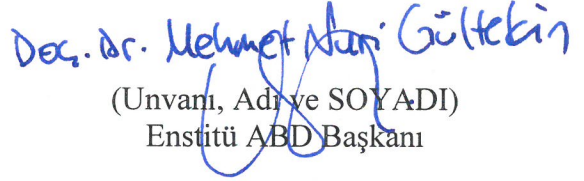 Doç. Dr. Mehmet Nuri Gültekin
(Unvanı, Adı ve SOYADI)
Enstitü ABD Başkanı